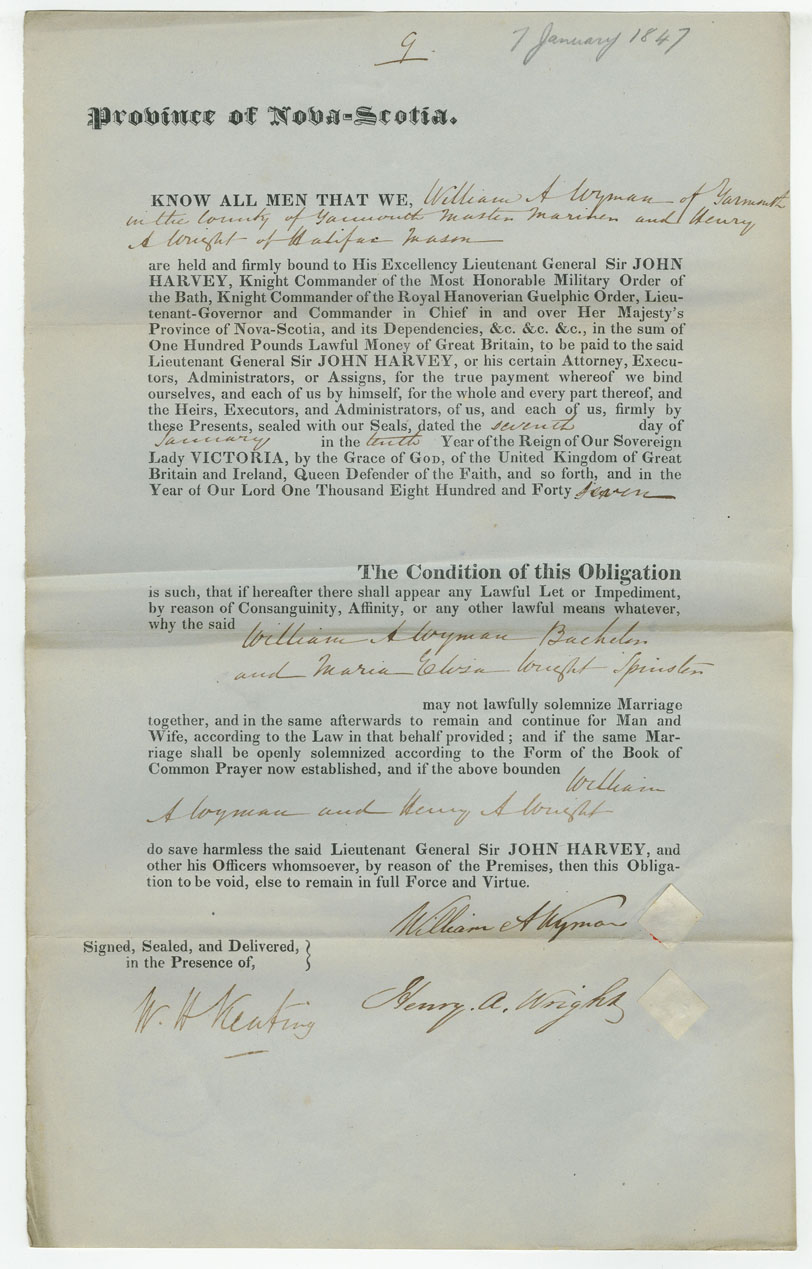 9
7 January 1847
Province of Nova-Scotia.
KNOW ALL MEN THAT WE, William A Wyman of Yarmouth
in the County of Yarmouth Master Mariner and Henry
A Wright of Halifax Mason
are held and firmly bound to His Excellency Lieutenant General Sir JOHN
HARVEY, Knight Commander of the Most Honorable Military Order of
the Bath, Knight Commander of the Royal Hanoverian Guelphic Order, Lieu-
tenant-Governor and Commander in Chief in and over Her Majesty's
Province of Nova-Scotia, and its Dependencies, &c. &c. &c., in the sum of
One Hundred Pounds Lawful Money of Great Britain, to be paid to the said
Lieutenant General Sir JOHN HARVEY, or his certain Attorney, Execu-
tors, Administrators, or Assigns, for the true payment whereof we bind
ourselves, and each of us by himself, for the whole and every part thereof, and
the Heirs, Executors, and Administrators, of us, and each of us, firmly by
these Presents, sealed with our Seals, dated the seventh day of
January in the tenth Year of the Reign of Our Sovereign
Lady VICTORIA, by the Grace of GOD, of the United Kingdom of Great
Britain and Ireland, Queen Defender of the Faith, and so forth, and in the
Year of Our Lord One Thousand Eight Hundred and Forty seven
The Condition of this Obligation
is such, that if hereafter there shall appear any Lawful Let or Impediment,
by reason of Consanguinity, Affinity, or any other lawful means whatever,
why the said
William A Wyman Bachelor
and Maria Elvsa Wright Spinster
may not lawfully solemnize Marriage
together, and in the same afterwards to remain and continue for Man and
Wife, according to the Law in that behalf provided; and if the same Mar-
riage shall be openly solemnized according to the Form of the Book of
Common Prayer now established, and if the above bounden William
A Wyman and Henry A Wright
do save harmless the said Lieutenant General Sir JOHN HARVEY, and
other his Officers whomsoever, by reason of the Premises, then this Obliga-
tion to be void, else to remain in full Force and Virtue.
William A Wyman
Signed, Sealed, and Delivered,
in the Presence of,
Henry. A. Wright
W. H Keating